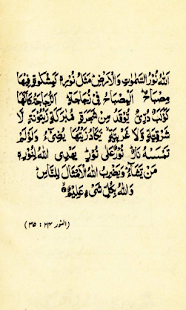 اللَّهُ نُورُ السَّمٰوٰتِ وَالْأَرْضِ مَثَلُ نُورِهِ كَمِشْكٰوةٍ فِيهَا
مِصْبَاحٌ الْمِصْبَاحُ فِي زُجَاجَةٍ الزُّجَاجَةُ كَأَنَّهَا
كَوْكَبٌ دُرِّيٌّ يُوقَدُ مِنْ شَجَرَةٍ مُبٰرَكَةٍ زَيْتُونَةٍ لَا
شَرْقِيَّةٍ وَلَا غَرْبِيَّةٍ يَكَادُ زَيْتُهَا يُضِيءُ وَلَوْ لَمْ
تَمْسَسْهُ نَارٌ نُورٌ عَلٰى نُورٍ يَهْدِي اللَّهُ لِنُورِهِ
مَنْ يَشَاءُ وَيَضْرِبُ اللَّهُ الْأَمْثَالَ لِلنَّاسِ
وَاللَّهُ بِكُلِّ شَيْءٍ عَلِيمٌ
(النور ٢٤ : ٣٥)